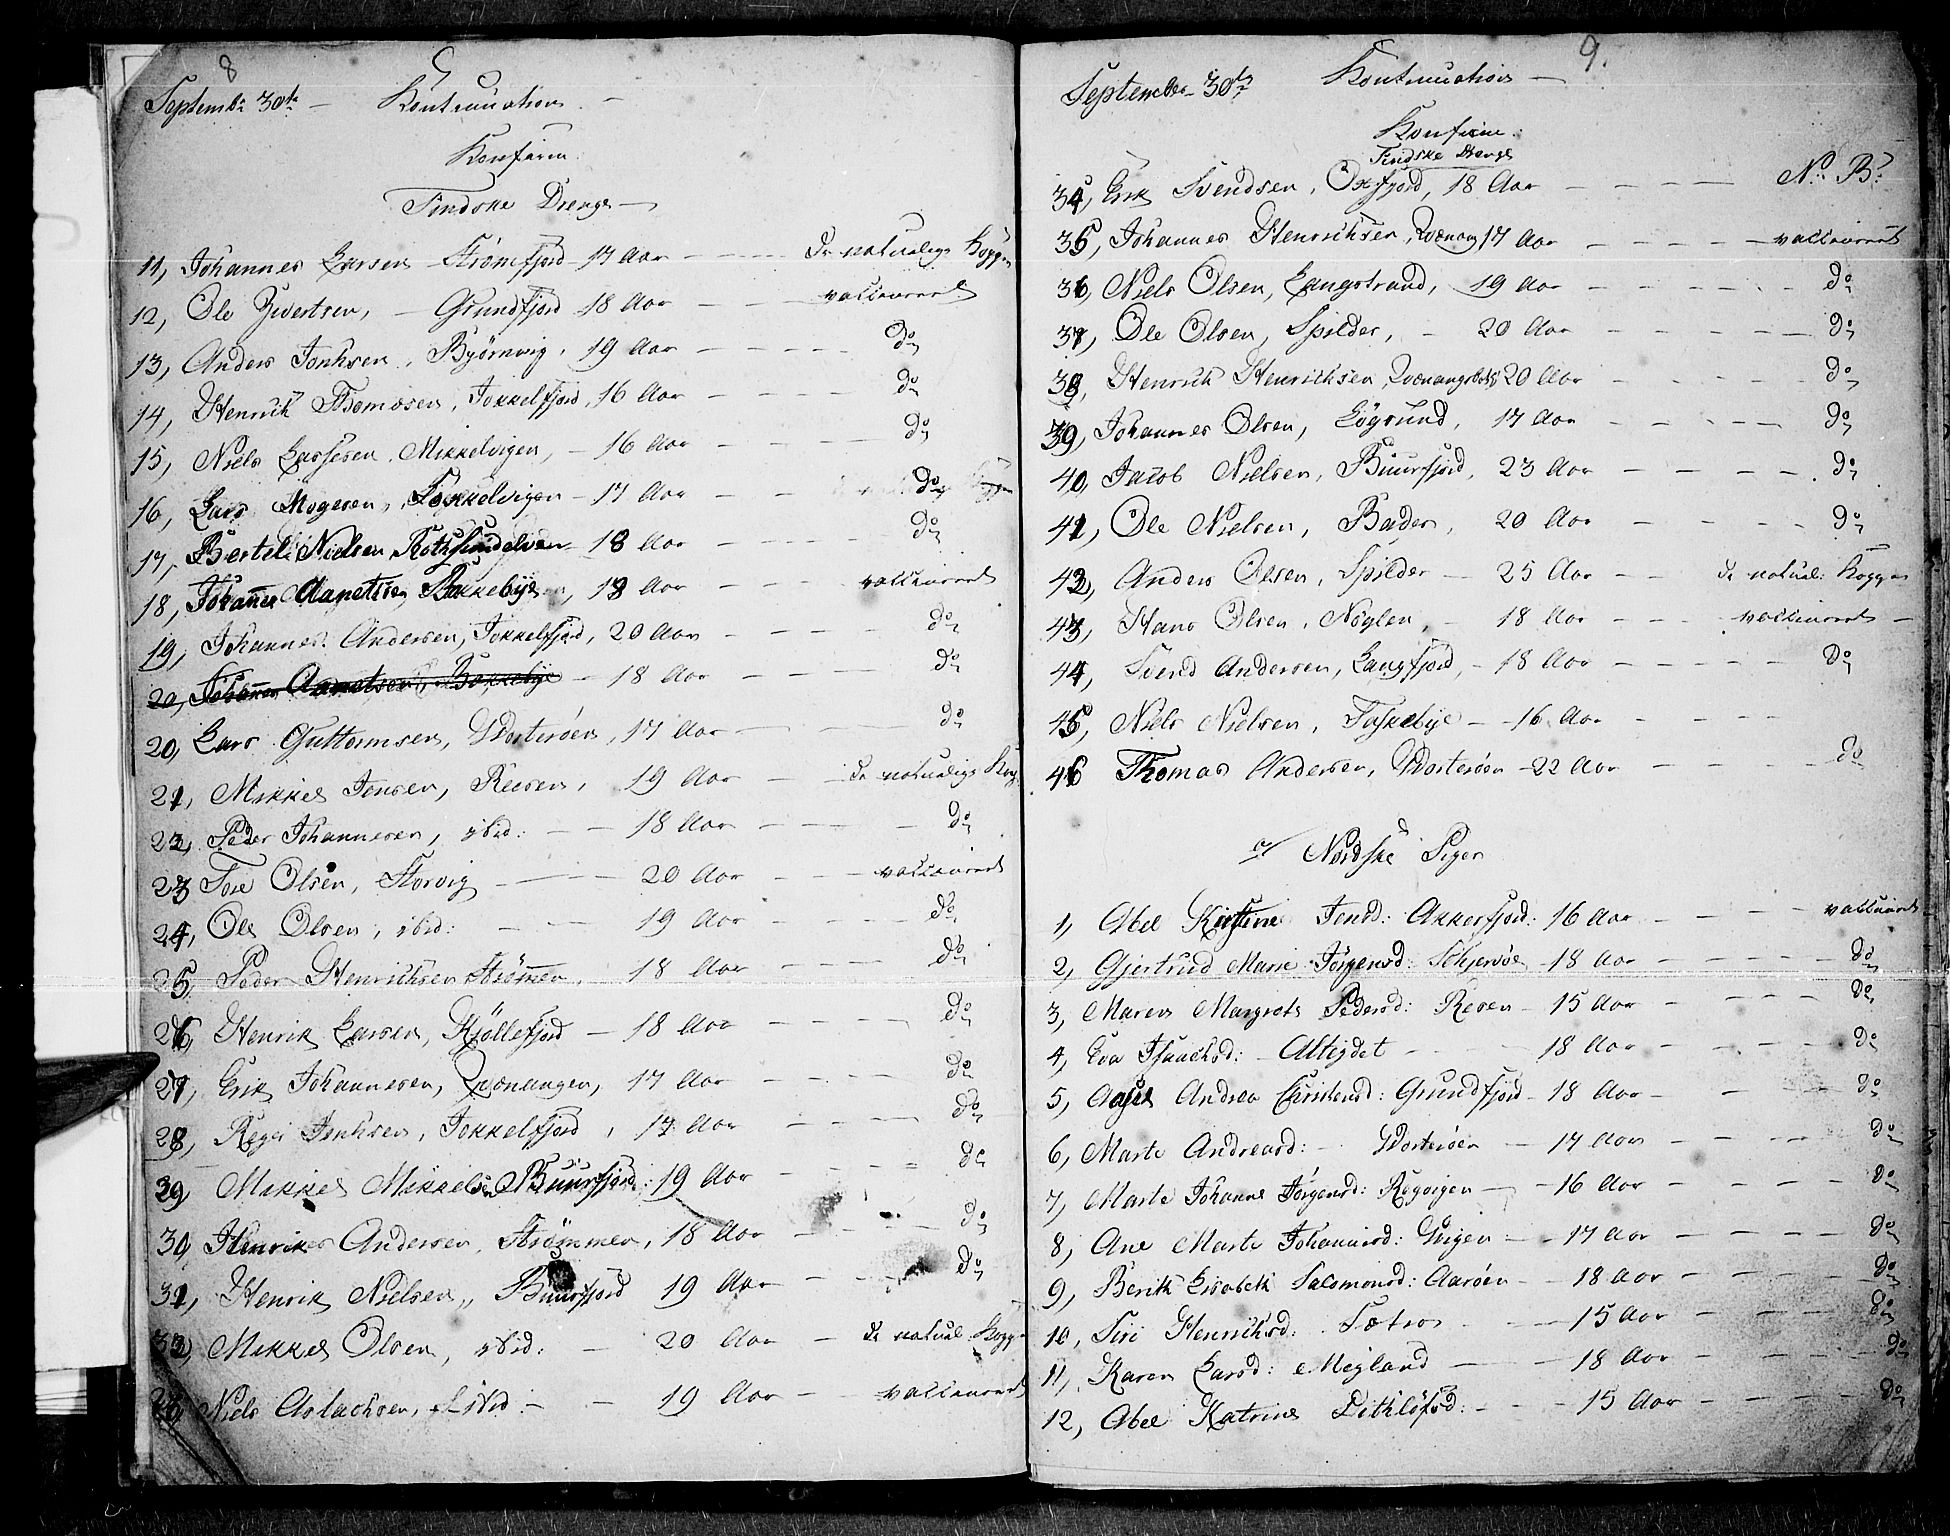 8
Septembr 30te – Kontinuation –
Konfirm:
Findske Drenge –
11, Johannes Larsen – Strömfjord – 17 Aar – – – – De naturlige Kopper
12, Ole Sivertsen, – Grundfjord 18 Aar – – vaccineret
13, Anders Jonhsen, Byörnvig, 19 Aar – – – – do
14, Henrich Thomasen, Jokkelfjord, 16 Aar – – – – do
15, Niels Lassesen, Mikkelvigen, – 16 Aar – – – do
16, Lars Mogesen, Jokkelvigen – 17 Aar – – do
17, Bertel Nielsen Rotsundelven – 18 Aar – – do
18, Johannes Aanetsen, Bakkebye, 18 Aar – – vaccineret
19, Johannes Andersen, Jokkelfjord, 20 Aar – – – do
20, Johannes Aanetsen, Bakkebye – 18 Aar – – – do
20, Lars Guttormsen, Vorterøen, 17 Aar – – do
21, Mikkel Jensen, Reisen, 19 Aar – – De naturlige Kop
22, Peder Johannesen, ibid: – – 18 Aar – – – do
23 Olsen, Storvig – – 20 Aar – – – vaccineret
24, Ole Olsen, ibid: – – 19 Aar – – – do
25, Peder Henrichsen Strömmen, 18 Aar – – – do
26, Henrik Larsen, Kjöllefjord – 18 Aar – – – – do
27, Erik Johannesen, Qvænangen, 17 Aar – – – do
28, Jonhsen, Jokkelfjord, 17 Aar – – – do
29, Mikkel Mikkelsen Buurfjord: 19 Aar – – – – do
30, Henrik Andersen, Strömmen, 18 Aar – – – – do
31, Henrik Nielsen, Buurfjord 19 Aar – – – do
32, Mikkel Olsen, ibid: – 20 Aar – De natual: Kopp
Niels Aslachsen, ibid: – – 19 Aar – – vaccineret
9.
September 30te Kontinuation –
Konfirm:
Findske Drenge
34, Erik Svendsen, Oxfjord, 18 Aar – – – – N: B:
35, Johannes Henrichsen, Qvænang 17 Aar – – – – – vaccineret
36, Niels Olsen, Langstrand, 19 Aar – – – – – do
37, Ole Olsen, Spilder, – 20 Aar – – – – – do
38, Henrich Henrichsen, Qvænangsbotn 20 Aar – – – – do
39, Johannes Olsen, Lögsund, 17 Aar – – – – do
40, Jacob Nielsen, Buurfjord, 23 Aar – – – – do
41, Ole Nielsen, Bader, 20 Aar – – – – do
42, Anders Olsen, Spilder – 25 Aar – – De natual: Kopper
43, Hans Olsen, Nöglen, – 18 Aar – – – vaccineret –
44, Svend Andersen, Langfjord, – 18 Aar – – – – do
45, Niels Nielsen, Taskebye – – 16 Aar – – – –
46 Thomas Andersen, Vorterøen – 22 Aar – – – – do
c/ Nordske Piger
1, Abel Kirstine Jensd: Akkerfjord: 16 Aar – – – – vaccineret
2, Gjertrud Marie Jörgensd: Schjervöe – 18 Aar – – – – do
3, Maren Margrete Pedersd: Resen – 15 Aar – – – – do
4, Eva Isaachsd: – Alteidet – – 18 Aar – – – – do
5, Andrea Christensd: Grundfjord – 18 Aar – – – do
6, Marte Andreasd: – Vorterøen – 17 Aar – – – – do
7, Marte Johanne Jörgensd: Rogvigen – – 16 Aar – – – do
8, Ane Marte Johannesd: Vigen – – 17 Aar – – – – do
9, Berith Elisabeth Salomonsd: Aaröen – – 18 Aar – – – – do
10, Siri Henrichsd: – – – 15 Aar – – – – do
11, Karen Larsd: Meyland – – – 18 Aar – – – – do
12, Abel Katrine Dithlöfsd: – – – 15 Aar – – – – do